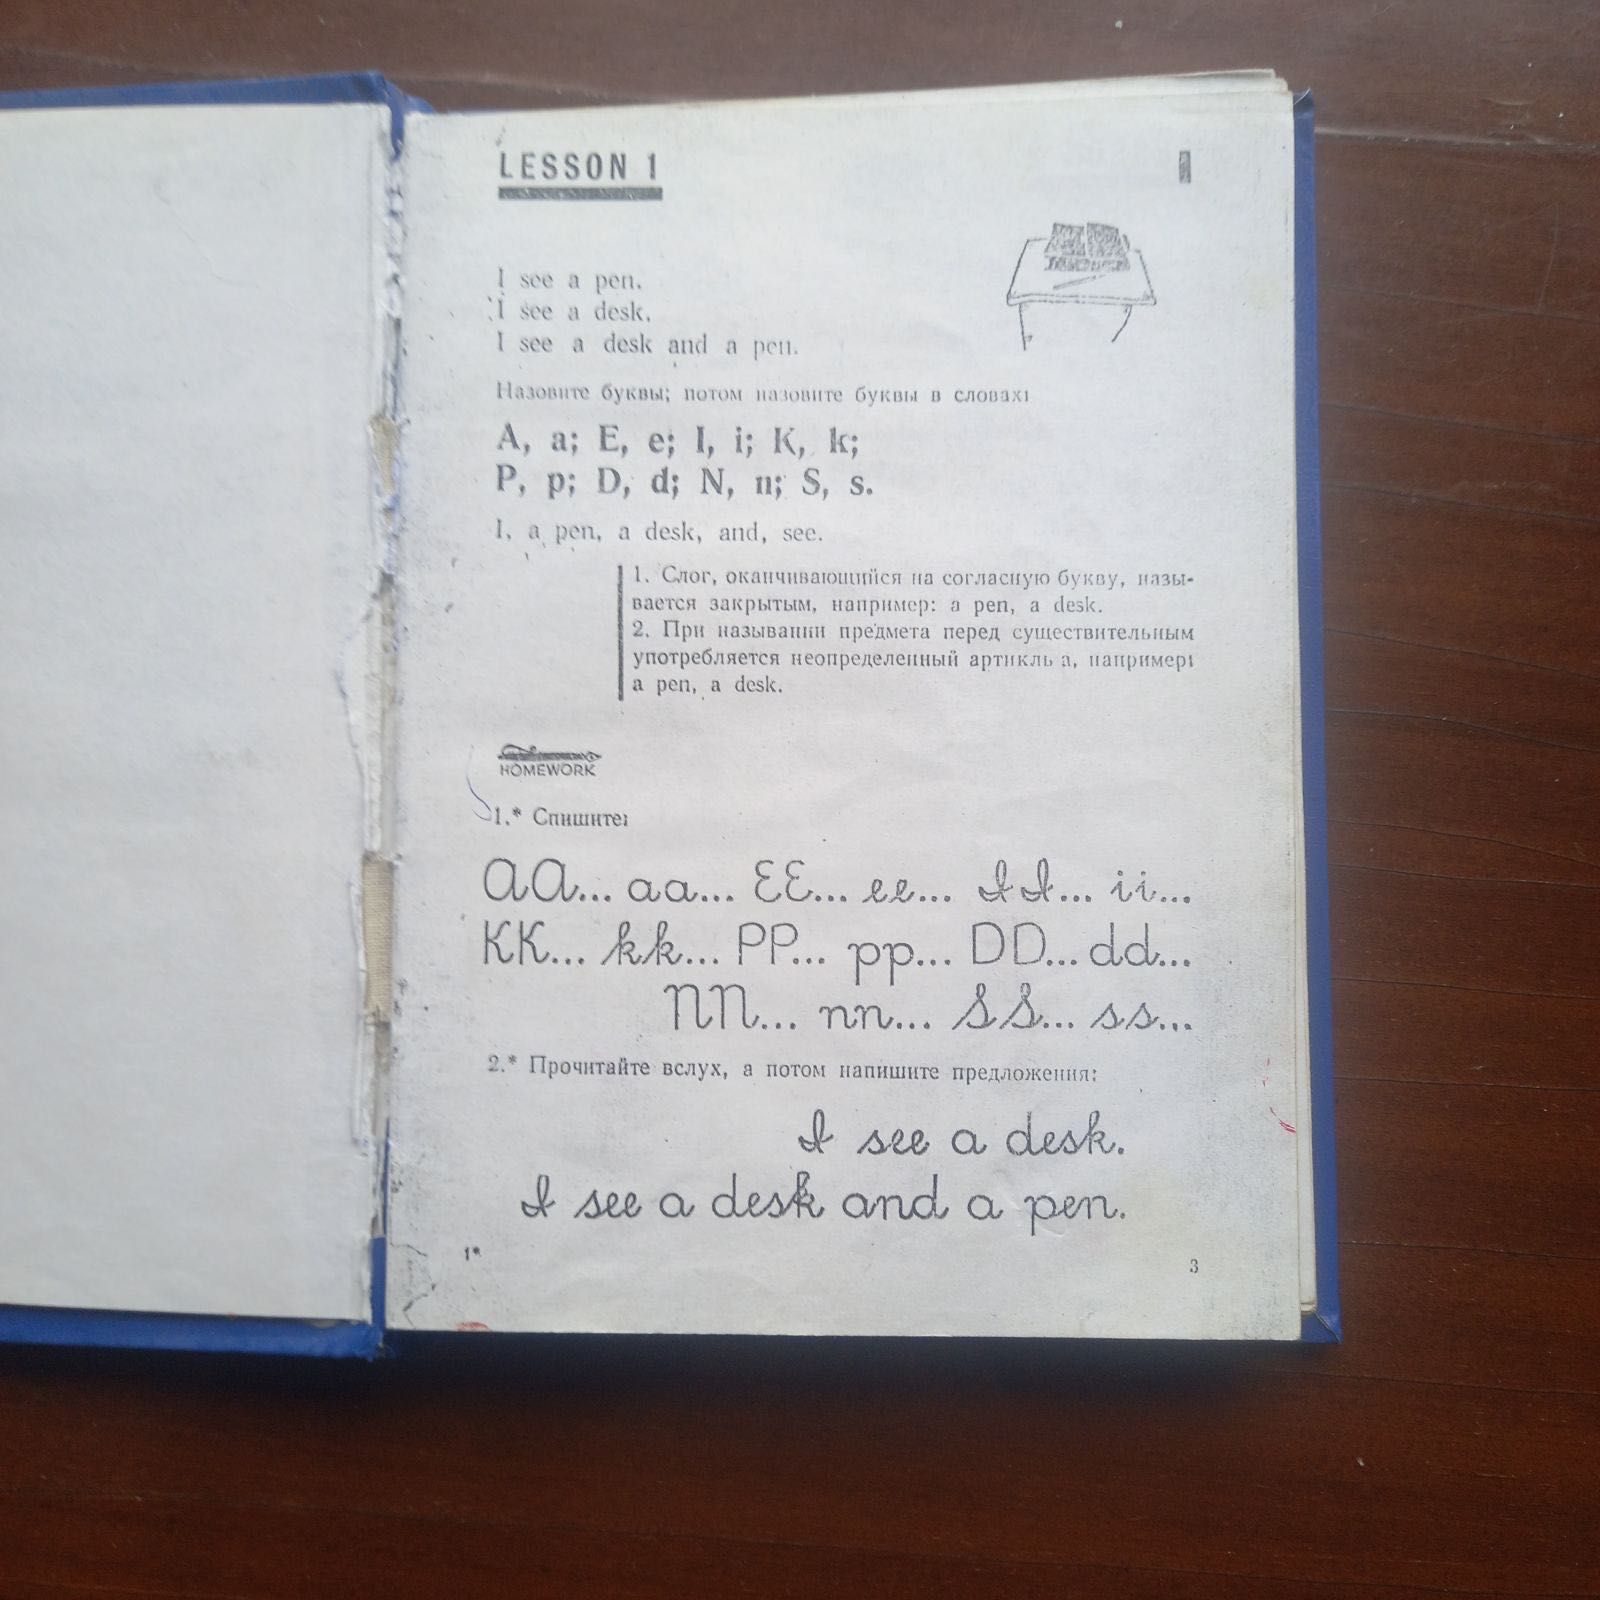 LESSON 1
I see a pen.
I see a desk.
I see a desk and a pen.
Назовите буквы; потом назовите буквы в словах:
A, a; E, e; I, i; K, k;
P, p; D, d; N, n; S, s.
I, a pen, a desk, and, see.
1. Слог, оканчивающийся на согласную букву, назы-
вается закрытым, например: a pen, a desk.
2. При назывании предмета перед существительным
употребляется неопределенный артикль a, например:
a pen, a desk.
HOMEWORK
1.* Спишите:
AA... aa... EE... ee... II... ii...
KK... kk... PP... pp... DD... dd...
NN... nn... SS... ss...
2.* Прочитайте вслух, а потом напишите предложения:
I see a desk.
I see a desk and a pen.
1*
3